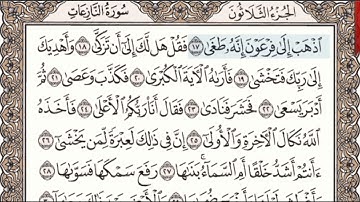 سُورَةُ النَّازِعَاتِ الجُزْءُ الثَّلَاثُونَ
اذْهَبْ إِلَىٰ فِرْعَوْنَ إِنَّهُ طَغَىٰ ١٧ فَقُلْ هَل لَّكَ إِلَىٰ أَن تَزَكَّىٰ ١٨ وَأَهْدِيَكَ
إِلَىٰ رَبِّكَ فَتَخْشَىٰ ١٩ فَأَرَىٰهُ الْآيَةَ الْكُبْرَىٰ ٢٠ فَكَذَّبَ وَعَصَىٰ ٢١ ثُمَّ
أَدْبَرَ يَسْعَىٰ ٢٢ فَحَشَرَ فَنَادَىٰ ٢٣ فَقَالَ أَنَا۠ رَبُّكُمُ الْأَعْلَىٰ ٢٤ فَأَخَذَهُ
اللَّهُ نَكَالَ الْآخِرَةِ وَالْأُولَىٰ ٢٥ إِنَّ فِي ذَٰلِكَ لَعِبْرَةً لِّمَن يَخْشَىٰ ٢٦
ءَأَنتُمْ أَشَدُّ خَلْقًا أَمِ السَّمَاءُ ۚ بَنَىٰهَا ٢٧ رَفَعَ سَمْكَهَا فَسَوَّىٰهَا ٢٨